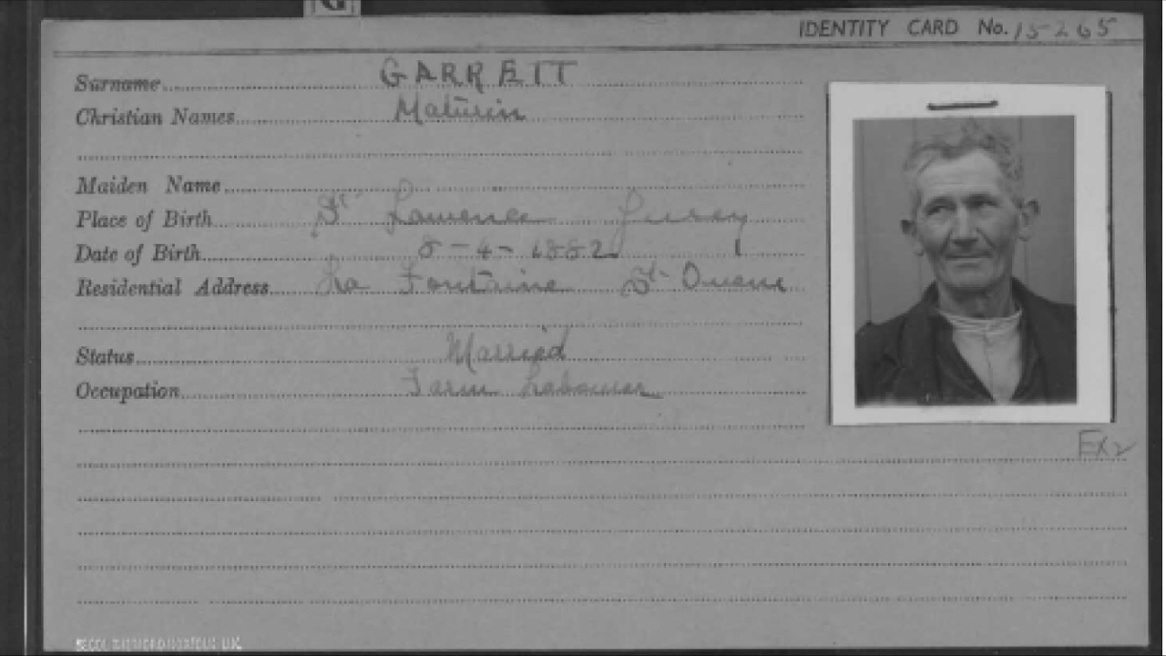 G
IDENTITY CARD No. 15-265
Surname GARRETT
Christian Names Maturin
Maiden Name
Place of Birth St Lawrence Jersey
Date of Birth 8-4-1882
Residential Address La Fontaine St Ouens
Status Married
Occupation Farm Labourer